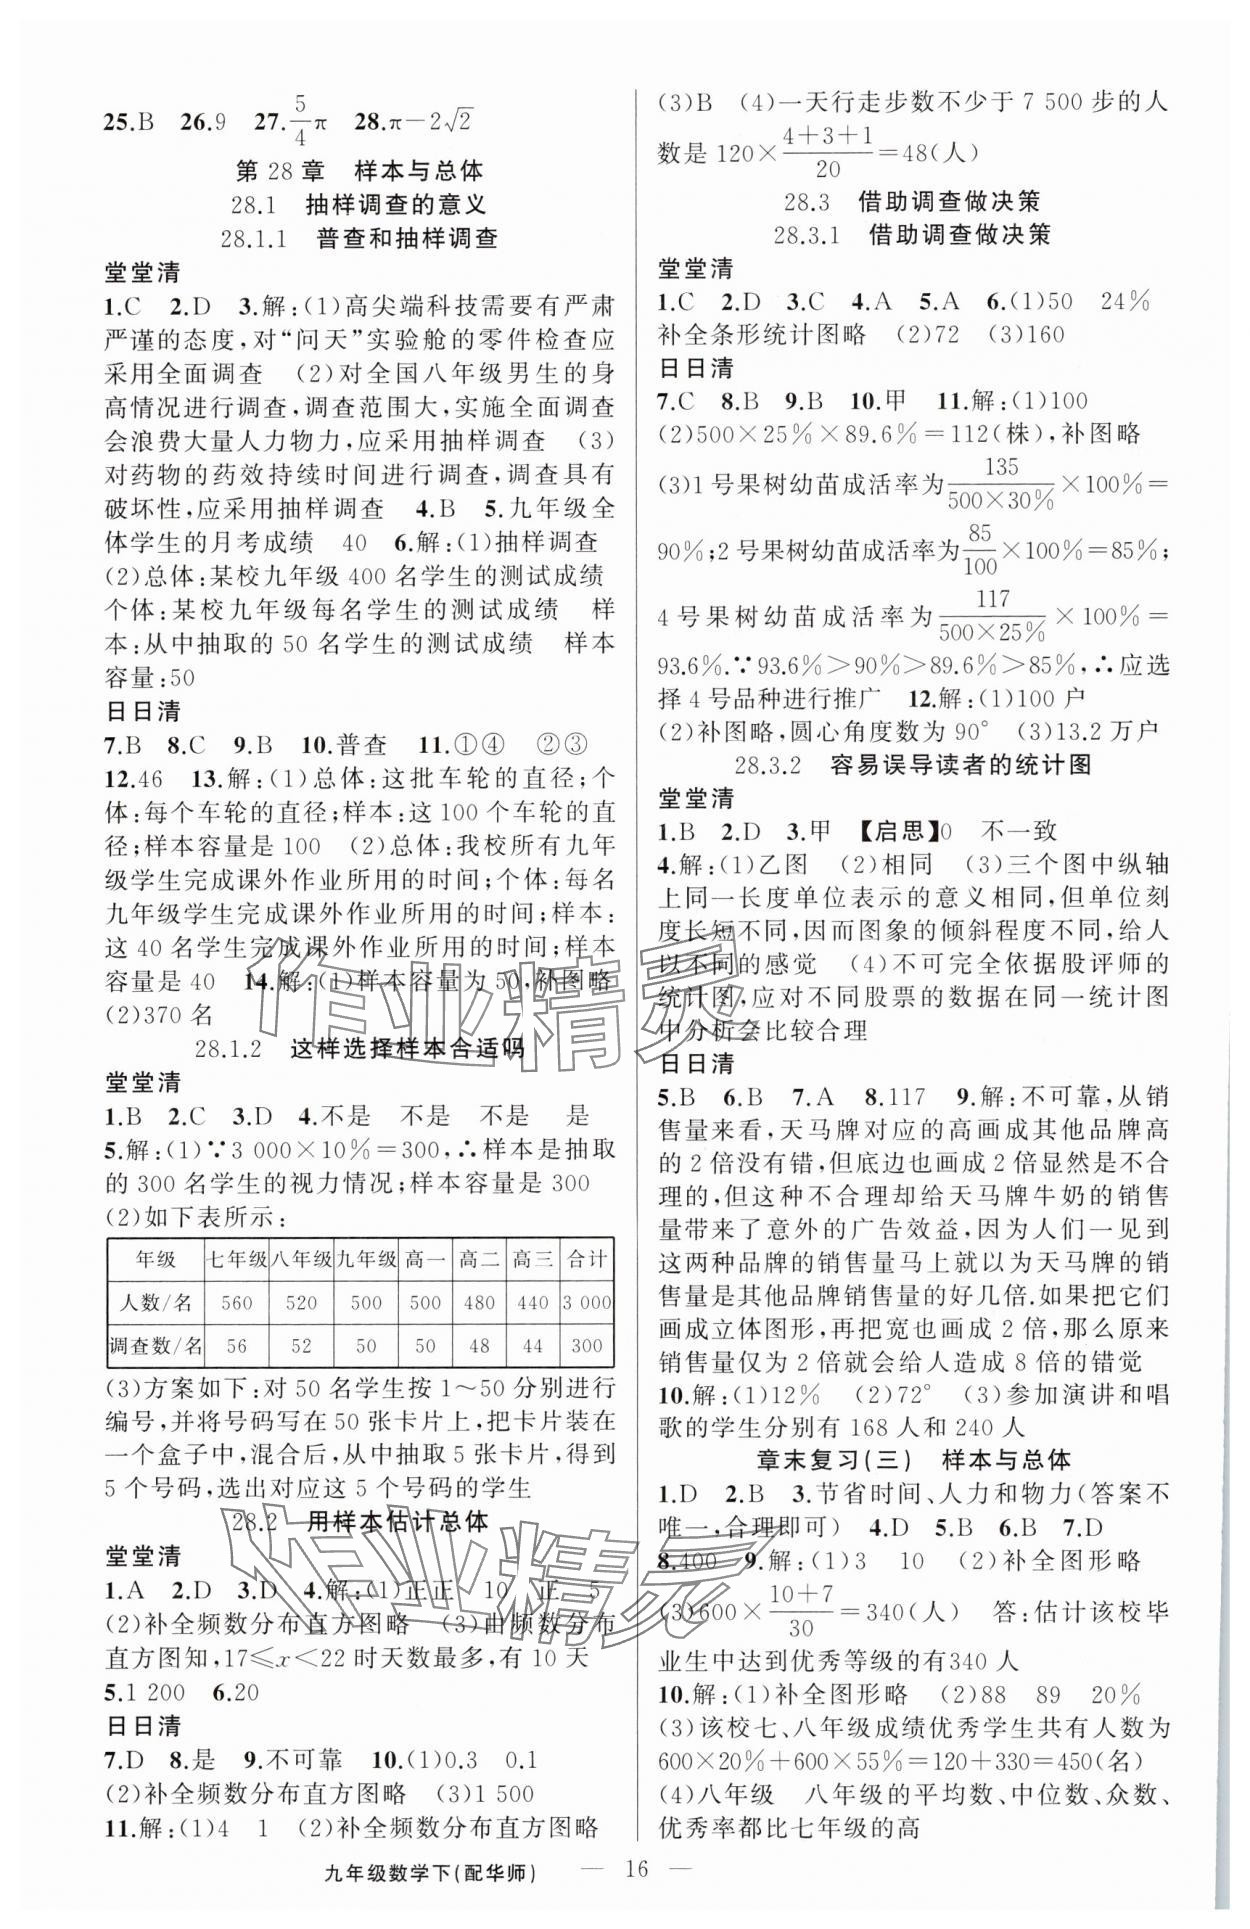 25.B 26.9 27.5/4π 28.π-2√2
第 28 章 样本与总体
28.1 抽样调查的意义
28.1.1 普查和抽样调查
堂堂清
1.C 2.D 3.解:(1)高尖端科技需要有严肃
严谨的态度,对“问天”实验舱的零件检查应
采用全面调查 (2)对全国八年级男生的身
高情况进行调查,调查范围大,实施全面调查
会浪费大量人力物力,应采用抽样调查 (3)
对药物的药效持续时间进行调查,调查具有
破坏性,应采用抽样调查 4.B 5.九年级全
体学生的月考成绩 40 6.解:(1)抽样调查
(2)总体:某校九年级 400 名学生的测试成绩
个体:某校九年级每名学生的测试成绩 样
本:从中抽取的 50 名学生的测试成绩 样本
容量:50
日日清
7.B 8.C 9.B 10.普查 11.①④ ②③
12.46 13.解:(1)总体:这批车轮的直径;个
体:每个车轮的直径;样本:这 100 个车轮的直
径;样本容量是 100 (2)总体:我校所有九年
级学生完成课外作业所用的时间;个体:每名
九年级学生完成课外作业所用的时间;样本:
这 40 名学生完成课外作业所用的时间;样本
容量是 40 14.解:(1)样本容量为 50,补图略
(2)370 名
28.1.2 这样选择样本合适吗
堂堂清
1.B 2.C 3.D 4.不是 不是 不是 是
5.解:(1)∵3 000×10%=300,∴样本是抽取
的 300 名学生的视力情况;样本容量是 300
(2)如下表所示:
年级 七年级 八年级 九年级 高一 高二 高三 合计
人数/名 560 520 500 500 480 440 3 000
调查数/名 56 52 50 50 48 44 300
(3)方案如下:对 50 名学生按 1～50 分别进行
编号,并将号码写在 50 张卡片上,把卡片装在
一个盒子中,混合后,从中抽取 5 张卡片,得到
5 个号码,选出对应这 5 个号码的学生
28.2 用样本估计总体
堂堂清
1.A 2.D 3.D 4.解:(1)正正 10 正 5
(2)补全频数分布直方图略 (3)由频数分布
直方图知,17≤x<22 时天数最多,有 10 天
5.1 200 6.20
日日清
7.D 8.是 9.不可靠 10.(1)0.3 0.1
(2)补全频数分布直方图略 (3)1 500
11.解:(1)4 1 (2)补全频数分布直方图略
(3)B (4)一天行走步数不少于 7 500 步的人
数是 120×(4+3+1)/20=48(人)
28.3 借助调查做决策
28.3.1 借助调查做决策
堂堂清
1.C 2.D 3.C 4.A 5.A 6.(1)50 24%
补全条形统计图略 (2)72 (3)160
日日清
7.C 8.B 9.B 10.甲 11.解:(1)100
(2)500×25%×89.6%=112(株),补图略
(3)1 号果树幼苗成活率为135/(500×30%)×100%=
90%;2 号果树幼苗成活率为85/100×100%=85%;
4 号果树幼苗成活率为117/(500×25%)×100%=
93.6%.∵93.6%>90%>89.6%>85%,∴应选
择 4 号品种进行推广 12.解:(1)100 户
(2)补图略,圆心角度数为 90° (3)13.2 万户
28.3.2 容易误导读者的统计图
堂堂清
1.B 2.D 3.甲 【启思】0 不一致
4.解:(1)乙图 (2)相同 (3)三个图中纵轴
上同一长度单位表示的意义相同,但单位刻
度长短不同,因而图象的倾斜程度不同,给人
以不同的感觉 (4)不可完全依据股评师的
统计图,应对不同股票的数据在同一统计图
中分析会比较合理
日日清
5.B 6.B 7.A 8.117 9.解:不可靠,从销
售量来看,天马牌对应的高画成其他品牌高
的 2 倍没有错,但底边也画成 2 倍显然是不合
理的,但这种不合理却给天马牌牛奶的销售
量带来了意外的广告效益,因为人们一见到
这两种品牌的销售量马上就以为天马牌的销
售量是其他品牌销售量的好几倍.如果把它们
画成立体图形,再把宽也画成 2 倍,那么原来
销售量仅为 2 倍就会给人造成 8 倍的错觉
10.解:(1)12% (2)72° (3)参加演讲和唱
歌的学生分别有 168 人和 240 人
章末复习(三) 样本与总体
1.D 2.B 3.节省时间、人力和物力(答案不
唯一,合理即可) 4.D 5.B 6.B 7.D
8.400 9.解:(1)3 10 (2)补全图形略
(3)600×(10+7)/30=340(人) 答:估计该校毕
业生中达到优秀等级的有340 人
10.解:(1)补全图形略 (2)88 89 20%
(3)该校七、八年级成绩优秀学生共有人数为
600×20%+600×55%=120+330=450(名)
(4)八年级 八年级的平均数、中位数、众数、
优秀率都比七年级的高
九年级数学下(配华师) — 16 —
作业精灵
作业精灵